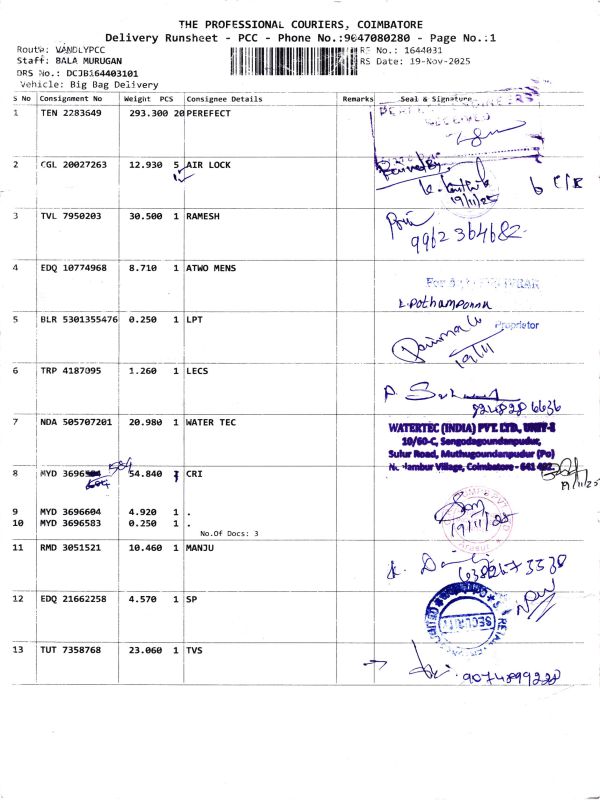 THE PROFESSIONAL COURIERS, COIMBATORE
Delivery Runsheet - PCC - Phone No.:9047080280 - Page No.:1
Route: VANDLYPCC RS No.: 1644031
Staff: BALA MURUGAN RS Date: 19-Nov-2025
DRS No.: DCJB164403101
Vehicle: Big Bag Delivery
S No Consignment No Weight PCS Consignee Details Remarks Seal & Signature
1 TEN 2283649 293.300 20 PEREFECT
RECEIVED
2 CGL 20027263 12.930 5 AIR LOCK
Received By
19/11/25
3 TVL 7950203 30.500 1 RAMESH
9962364682
4 EDQ 10774968 8.710 1 ATWO MENS
For
5 BLR 5301355476 0.250 1 LPT
Proprietor
19/11
6 TRP 4187095 1.260 1 LECS
8248286636
7 NDA 505707201 20.980 1 WATER TEC
WATERTEC (INDIA) PVT. LTD., UNIT-8
10/60-C, Sengodagoundanpudur,
Sulur Road, Muthugoundanpudur (Po)
Village, Coimbatore - 641
8 MYD 3696 584 54.840 CRI
19/11/25
9 MYD 3696604 4.920 1 .
10 MYD 3696583 0.250 1 .
No.Of Docs: 3
19/11/25
11 RMD 3051521 10.460 1 MANJU
6382673338
12 EDQ 21662258 4.570 1 SP
SECURITY
13 TUT 7358768 23.060 1 TVS
9074899228